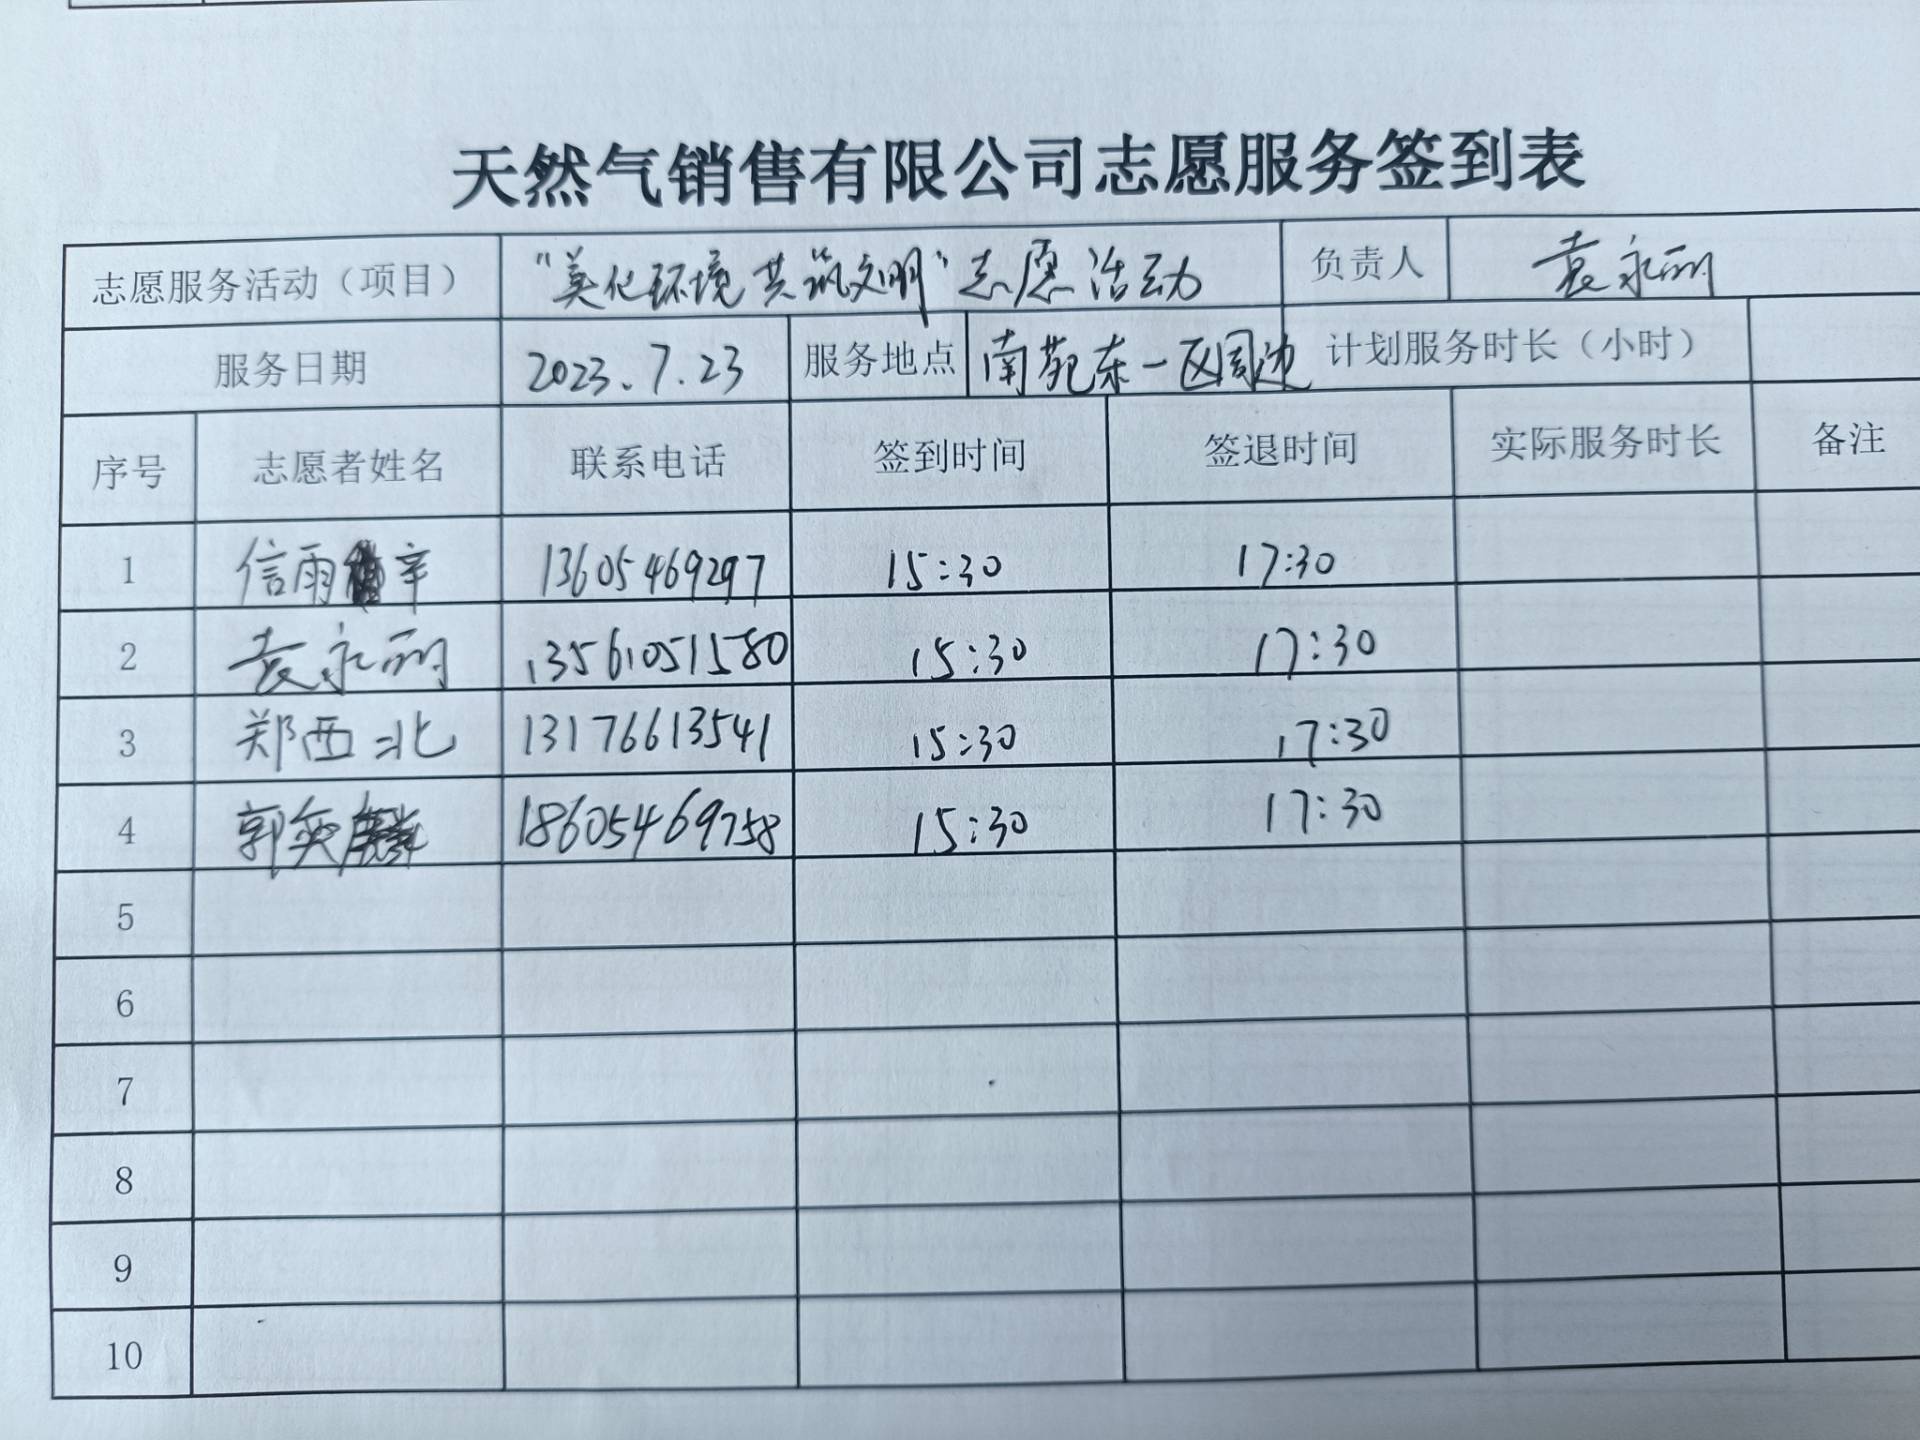 天然气销售有限公司志愿服务签到表
志愿服务活动（项目） “美化环境 共筑文明”志愿活动 负责人 袁永丽
服务日期 2023.7.23 服务地点 南苑东一区周边 计划服务时长（小时）
序号 志愿者姓名 联系电话 签到时间 签退时间 实际服务时长 备注
1 信雨辛 13605469297 15:30 17:30
2 袁永丽 13561051580 15:30 17:30
3 郑西北 13176613541 15:30 17:30
4 郭奕 18605469758 15:30 17:30
5
6
7
8
9
10